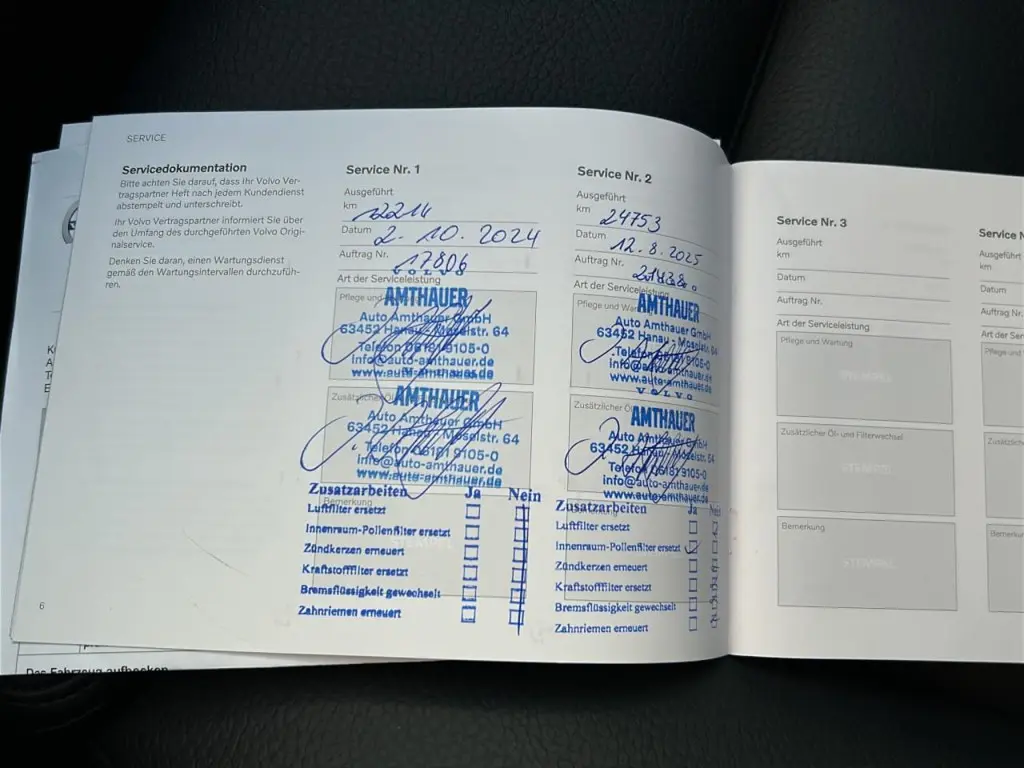 SERVICE
Servicedokumentation
Bitte achten Sie darauf, dass Ihr Volvo Ver-
tragspartner Heft nach jedem Kundendienst
abstempelt und unterschreibt.
Ihr Volvo Vertragspartner informiert Sie über
den Umfang des durchgeführten Volvo Origi-
nalservice.
Denken Sie daran, einen Wartungsdienst
gemäß den Wartungsintervallen durchzufüh-
ren.
6
Service Nr. 1
Ausgeführt
km 12214
Datum 2. 10. 2024
Auftrag Nr. 17806
VOLVO
Art der Serviceleistung
Pflege und
AMTHAUER
Auto Amthauer GmbH
63452 Hanau - Moselstr. 64
Telefon 06181 9105-0
info@auto-amthauer.de
www.auto-amthauer.de
Zusätzlicher Öl
AMTHAUER
Auto Amthauer GmbH
63452 Hanau - Moselstr. 64
Telefon 06181 9105-0
info@auto-amthauer.de
www.auto-amthauer.de
Zusatzarbeiten Ja Nein
Bemerkung
Luftfilter ersetzt
Innenraum-Pollenfilter ersetzt
Zündkerzen erneuert
Kraftstofffilter ersetzt
Bremsflüssigkeit gewechselt
Zahnriemen erneuert
Service Nr. 2
Ausgeführt
km 24753
Datum 12. 8. 2025
Auftrag Nr.
Art der Serviceleistung
Pflege und War
AMTHAUER
Auto Amthauer GmbH
63452 Hanau - Moselstr. 64
Telefon 06181 9105-0
info@auto-amthauer.de
www.auto-amthauer.de
VOLVO
Zusätzlicher Öl
AMTHAUER
Auto Amthauer GmbH
63452 Hanau - Moselstr. 64
Telefon 06181 9105-0
info@auto-amthauer.de
www.auto-amthauer.de
Zusatzarbeiten Ja Nein
Luftfilter ersetzt
Innenraum-Pollenfilter ersetzt
Zündkerzen erneuert
Kraftstofffilter ersetzt
Bremsflüssigkeit gewechselt
Zahnriemen erneuert
Service Nr. 3
Ausgeführt
km
Datum
Auftrag Nr.
Art der Serviceleistung
Pflege und Wartung
STEMPEL
Zusätzlicher Öl- und Filterwechsel
STEMPEL
Bemerkung
STEMPEL
Service N
Ausgeführt
km
Datum
Auftrag Nr.
Art der Ser
Pflege und
Zusätzlich
Bemerku
Das Fahrzeug aufbocken